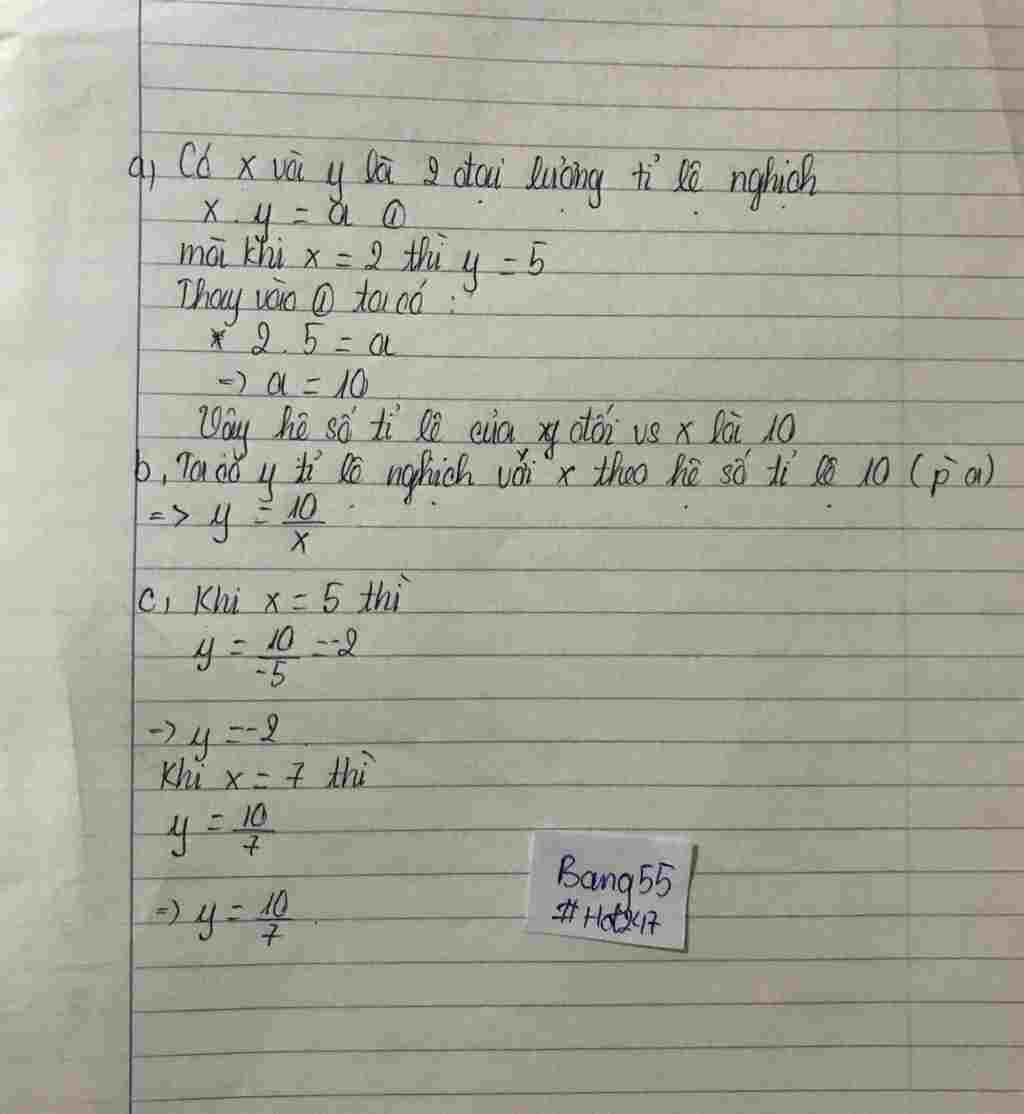 a, Có x và y là 2 đại lượng tỉ lệ nghịch
x . y = a ①
mà khi x = 2 thì y = 5
Thay vào ① ta có :
2 . 5 = a
=> a = 10
Vậy hệ số tỉ lệ của y đối vs x là 10
b, Ta có y tỉ lệ nghịch với x theo hệ số tỉ lệ 10 (p a)
=> y = 10/x
c, Khi x = 5 thì
y = 10/-5 = -2
=> y = -2
Khi x = 7 thì
y = 10/7
=> y = 10/7
Bang55
#Hot247